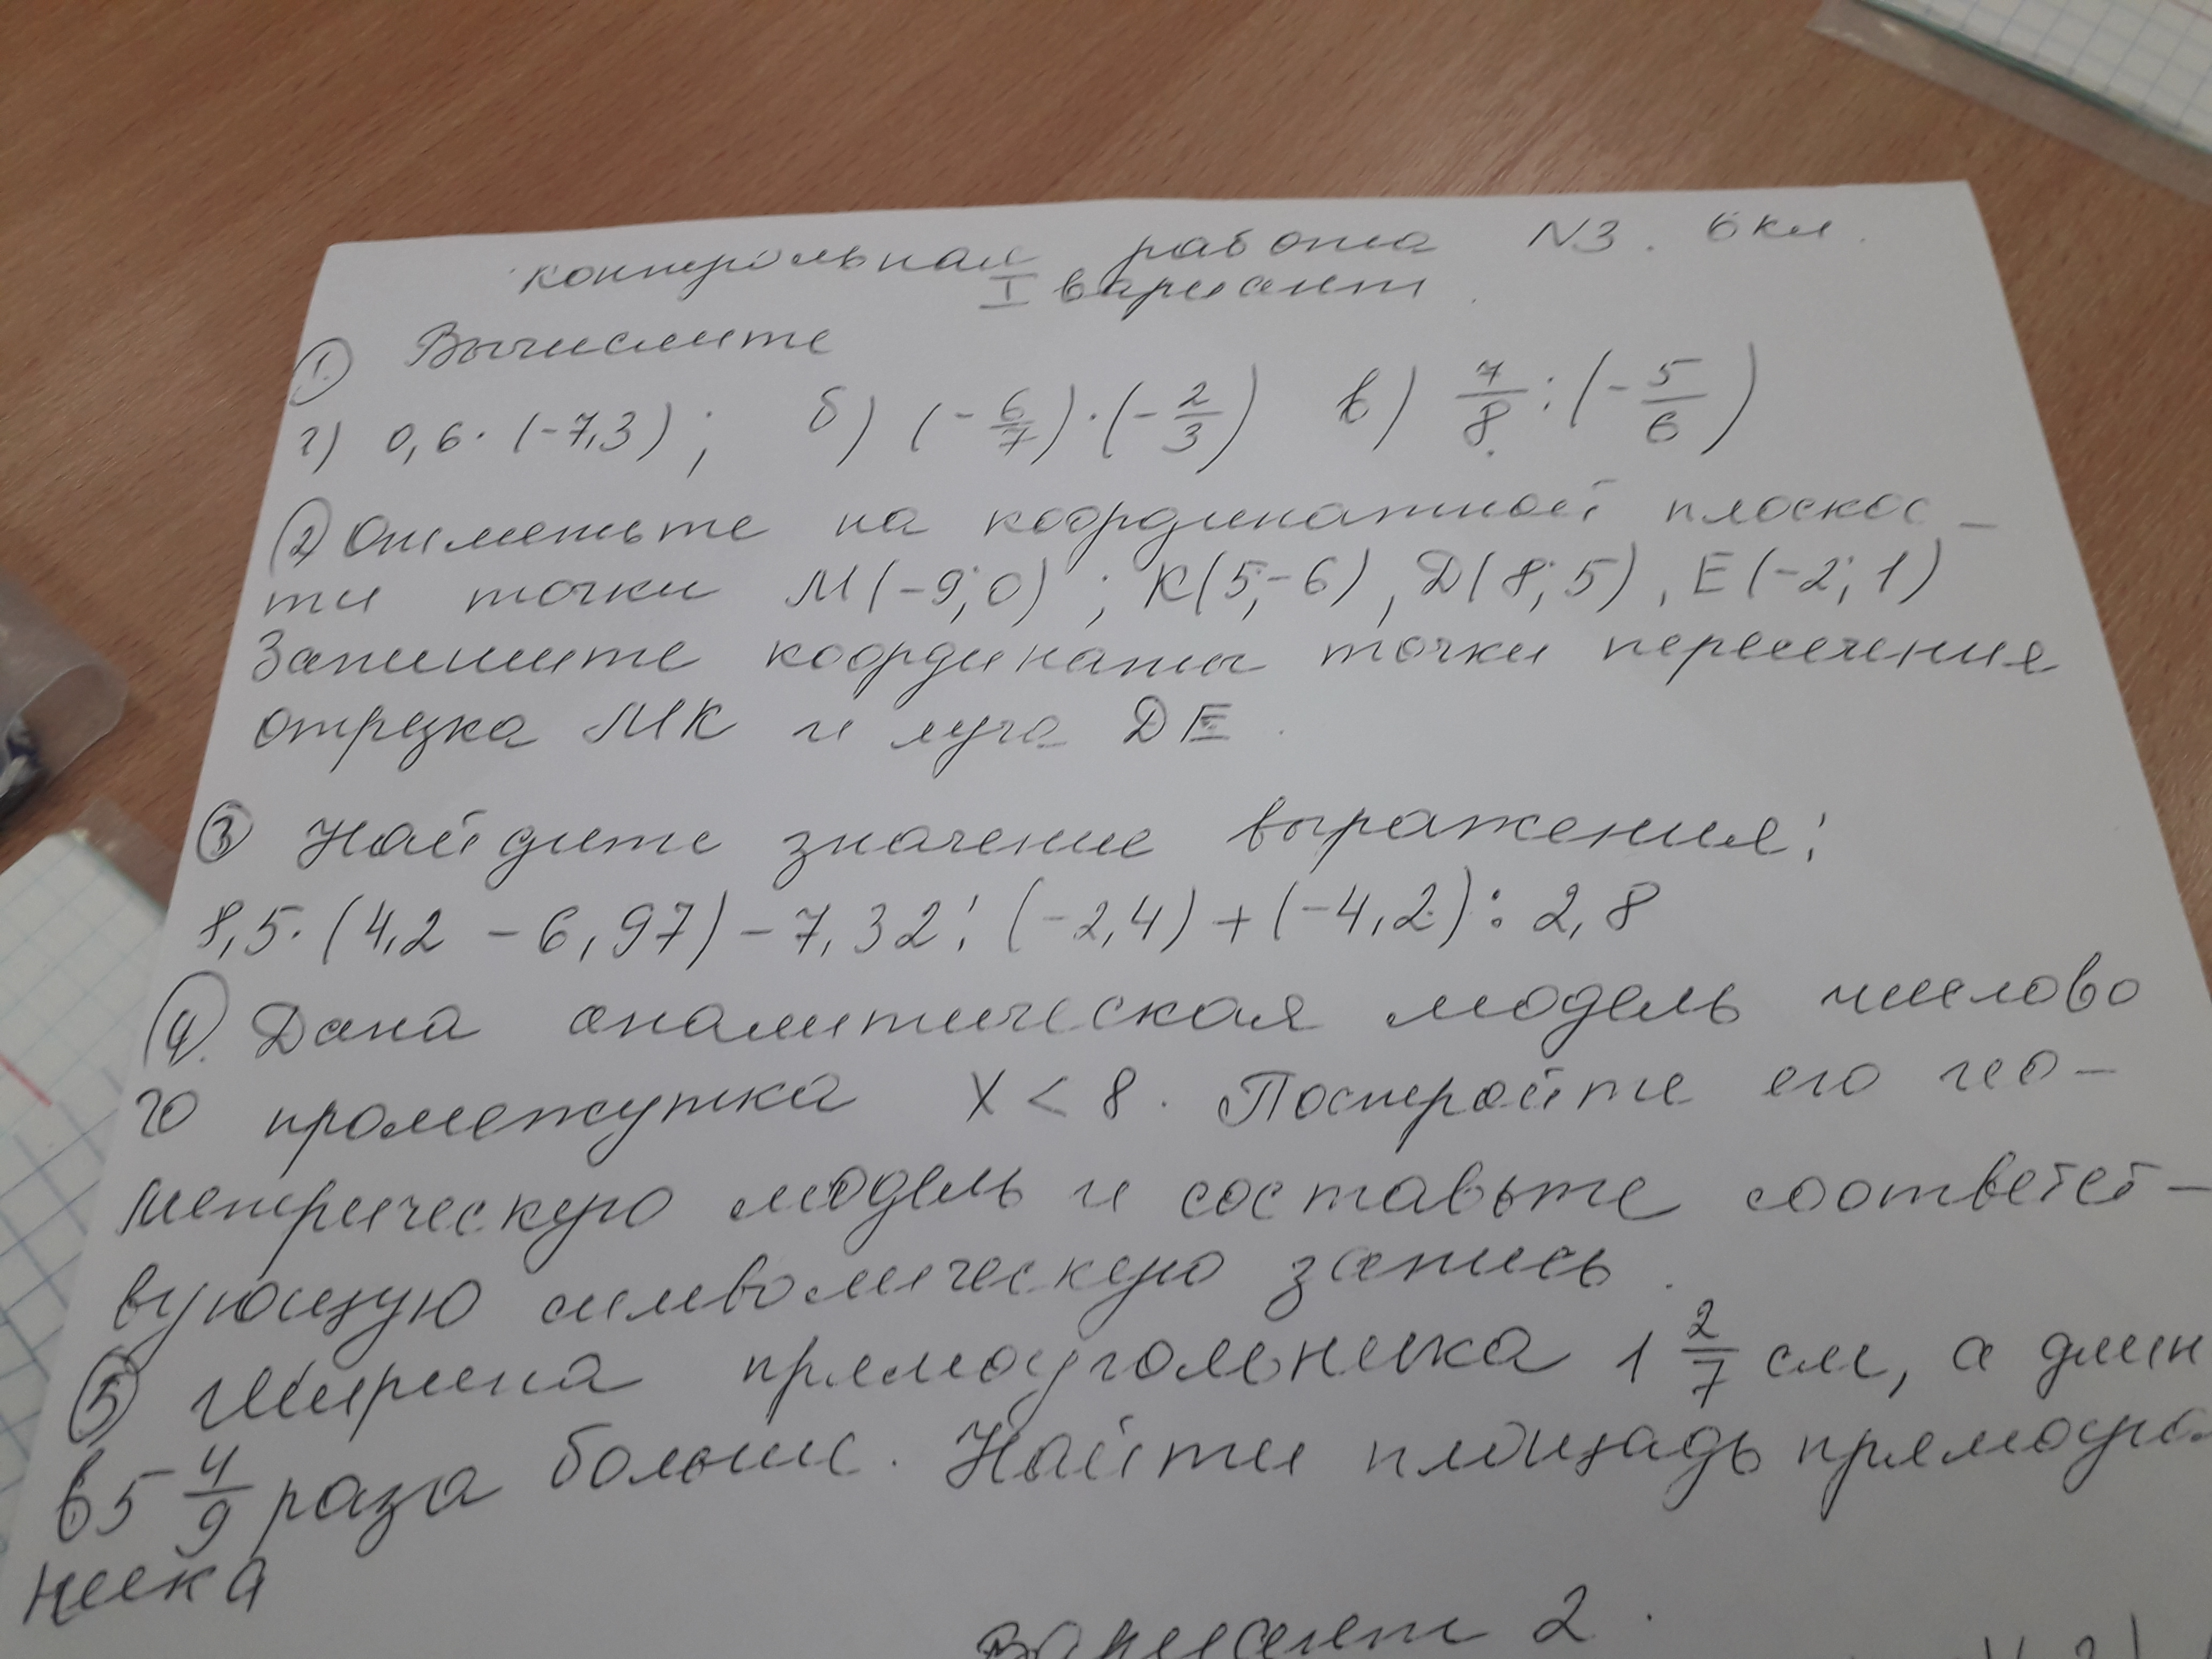 контрольная работа N3. 6 кл.
I вариант.
① Вычислите
а) 0,6·(-7,3); б) (-6/7)·(-2/3) в) 7/8:(-5/6)
② Отметьте на координатной плоскос-
ти точки М(-9;0); К(5;-6), Д(8;5), Е(-2;1)
Запишите координаты точки пересечения
отрезка МК и луча DE.
③ Найдите значение выражения:
8,5·(4,2 - 6,97) - 7,32:(-2,4)+(-4,2):2,8
④. Дана аналитическая модель числово
го промежутка X < 8. Постройте его гео-
метрическую модель и составьте соответст-
вующую символическую запись.
⑤ Ширина прямоугольника 1 2/7 см, а длин
в 5 4/9 раза больше. Найти площадь прямоуго
ника
Вариант 2.